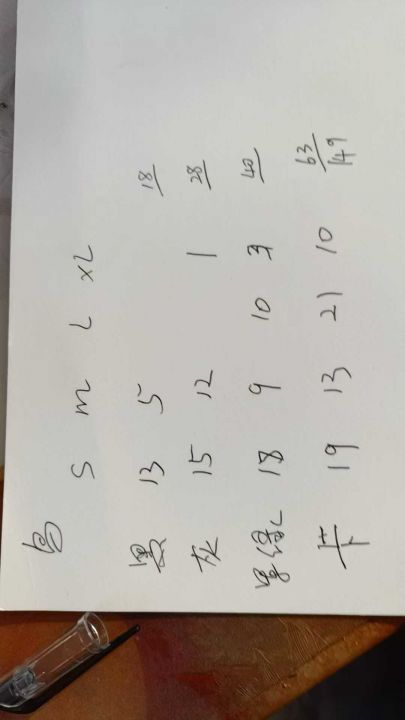 S m L XL
黑 13 5 18
灰 15 12 1 28
墨绿 18 9 10 3 40
卡 19 13 21 10 63
149